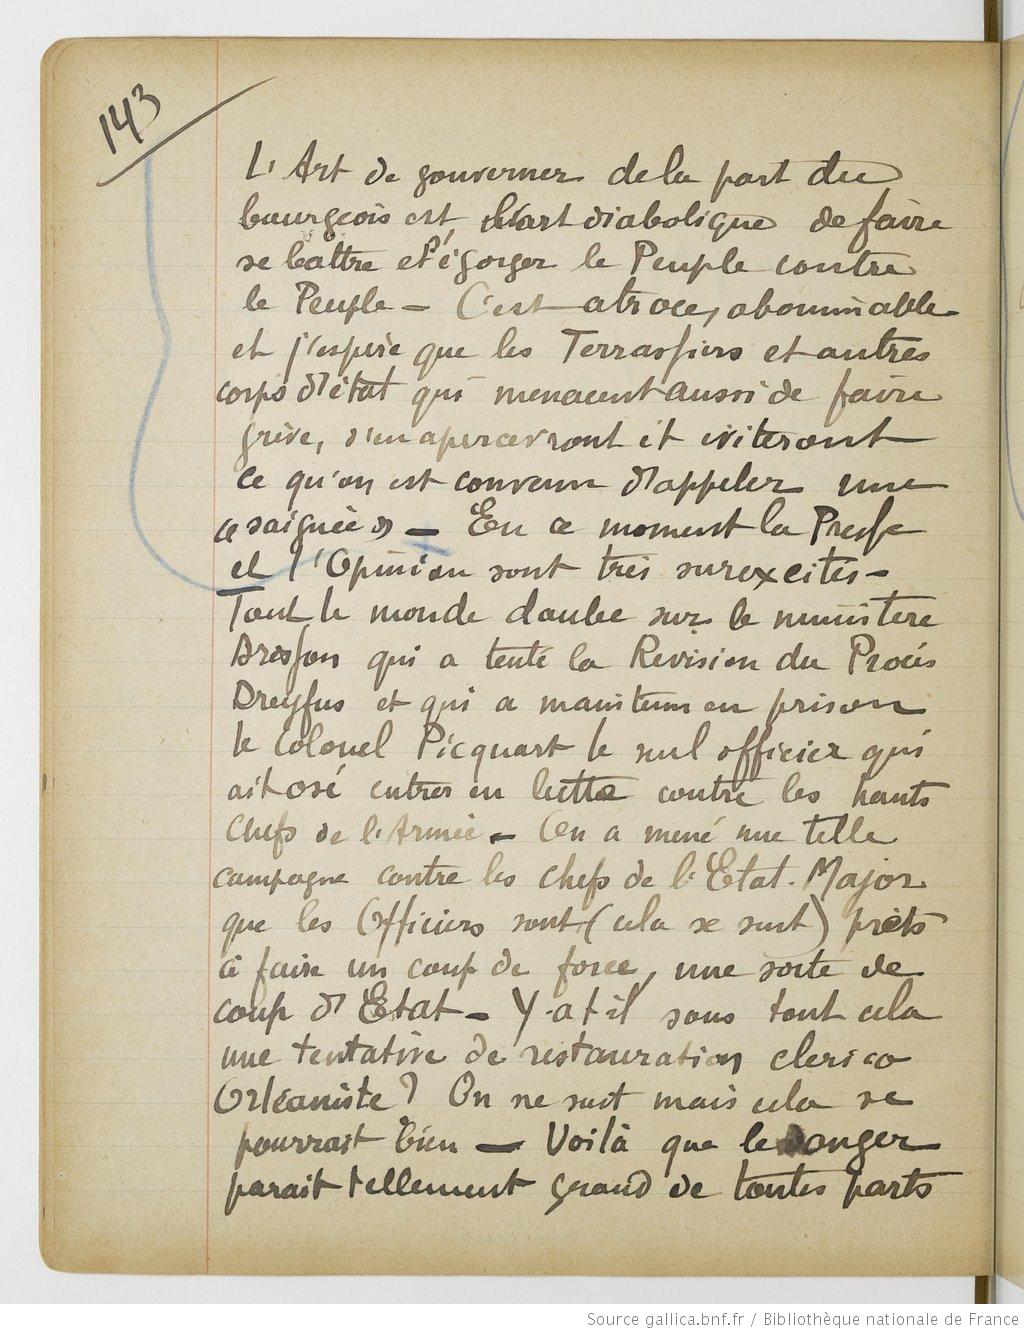 143
L'Art de gouverner de la part du
bourgeois est, l'art diabolique de faire
se battre et s'égorger le Peuple contre
le Peuple — C'est atroce, abominable
et j'espère que les Terrassiers et autres
corps d'état qui menacent aussi de faire
grève, s'en apercevront et éviteront
ce qu'on est convenu d'appeler une
« saignée » — En ce moment la Presse
et l'Opinion sont très surexcités —
Tout le monde daube sur le ministère
Brisson qui a tenté la Révision du Procès
Dreyfus et qui a maintenu en prison
le Colonel Picquart le seul officier qui
ait osé entrer en lutte contre les hauts
Chefs de l'Armée — On a mené une telle
campagne contre les chefs de l'Etat-Major
que les Officiers sont (cela se sent) prêts
à faire un coup de force, une sorte de
coup d'Etat — Y-a t'il sous tout cela
une tentative de restauration clerico
Orléaniste ? On ne sait mais cela se
pourrait bien — Voilà que le danger
parait tellement grand de toutes parts
Source gallica.bnf.fr / Bibliothèque nationale de France